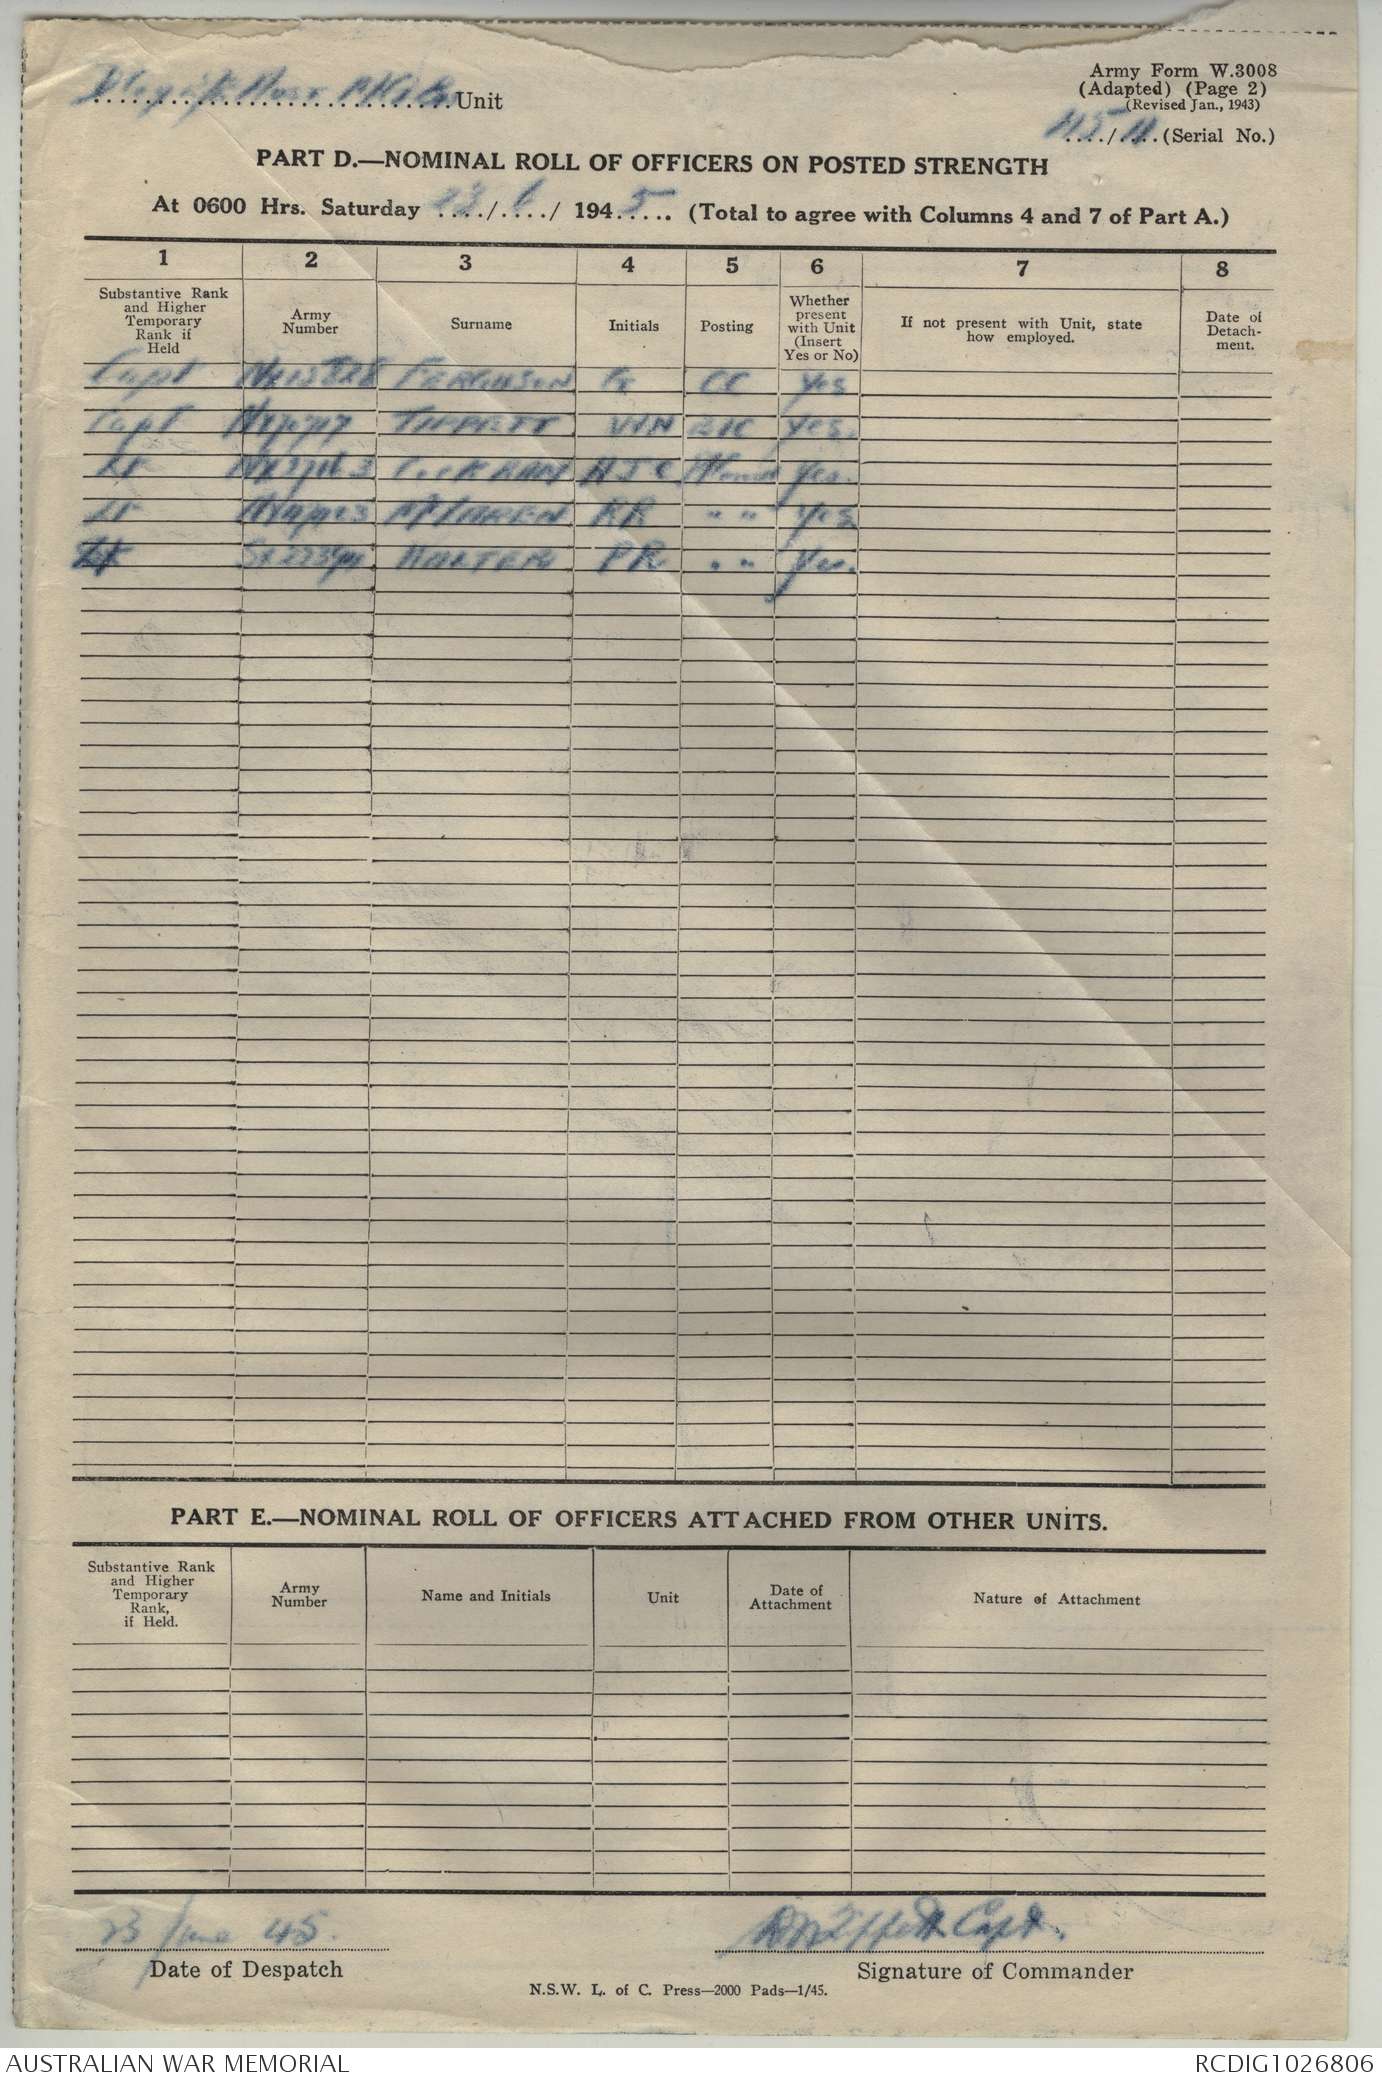 Unit
Army Form W.3008
(Adapted) (Page 2)
(Revised Jan., 1943)
(Serial No.)
PART D.—NOMINAL ROLL OF OFFICERS ON POSTED STRENGTH
At 0600 Hrs. Saturday 23/6/ 1945 (Total to agree with Columns 4 and 7 of Part A.)
1 2 3 4 5 6 7 8
Substantive Rank and Higher Temporary Rank if Held
Army Number
Surname
Initials
Posting
Whether present with Unit (Insert Yes or No)
If not present with Unit, state how employed.
Date of Detach-ment.
Capt FERGUSON Yes
Capt TIPPETT Yes.
Lt Yes.
Lt RR " " Yes
Lt PR " " Yes.
PART E.—NOMINAL ROLL OF OFFICERS ATTACHED FROM OTHER UNITS.
Substantive Rank and Higher Temporary Rank, if Held.
Army Number
Name and Initials
Unit
Date of Attachment
Nature of Attachment
23 June 45.
Capt.
Date of Despatch
Signature of Commander
N.S.W. L. of C. Press—2000 Pads—1/45.
AUSTRALIAN WAR MEMORIAL
RCDIG1026806